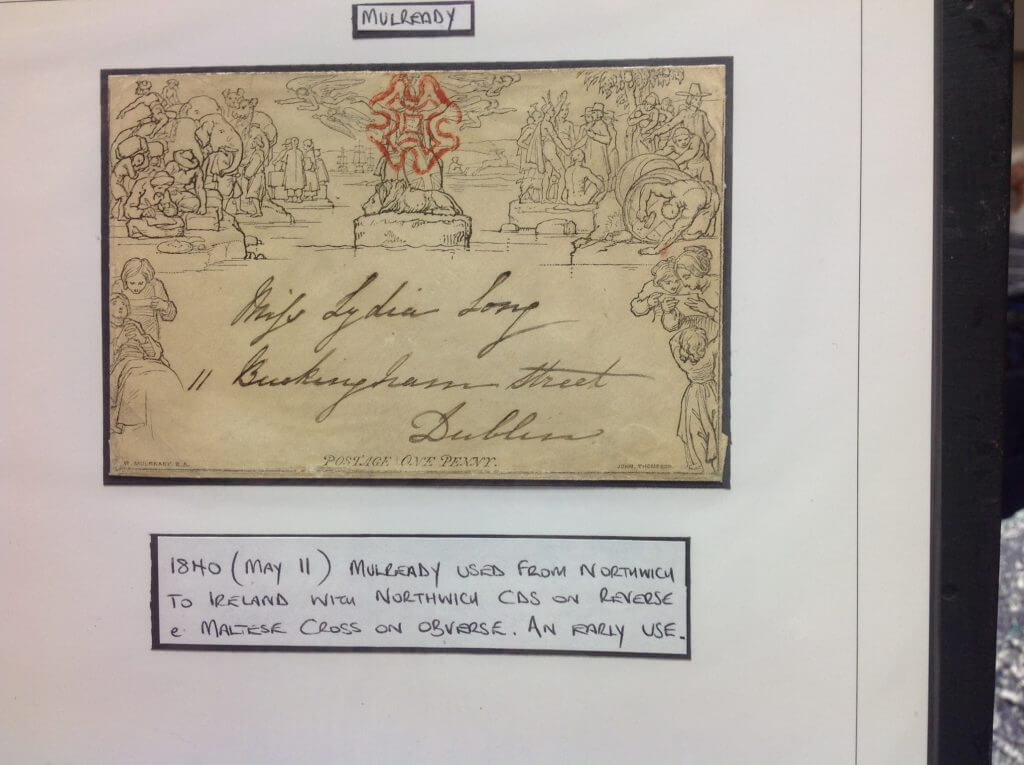 MULREADY
Miss Lydia Long
11 Buckingham Street
Dublin
POSTAGE ONE PENNY.
W. MULREADY. R.A.
JOHN. THOMPSON
1840 (MAY 11) MULREADY USED FROM NORTHWICH
TO IRELAND WITH NORTHWICH CDS ON REVERSE
& MALTESE CROSS ON OBVERSE. AN EARLY USE.